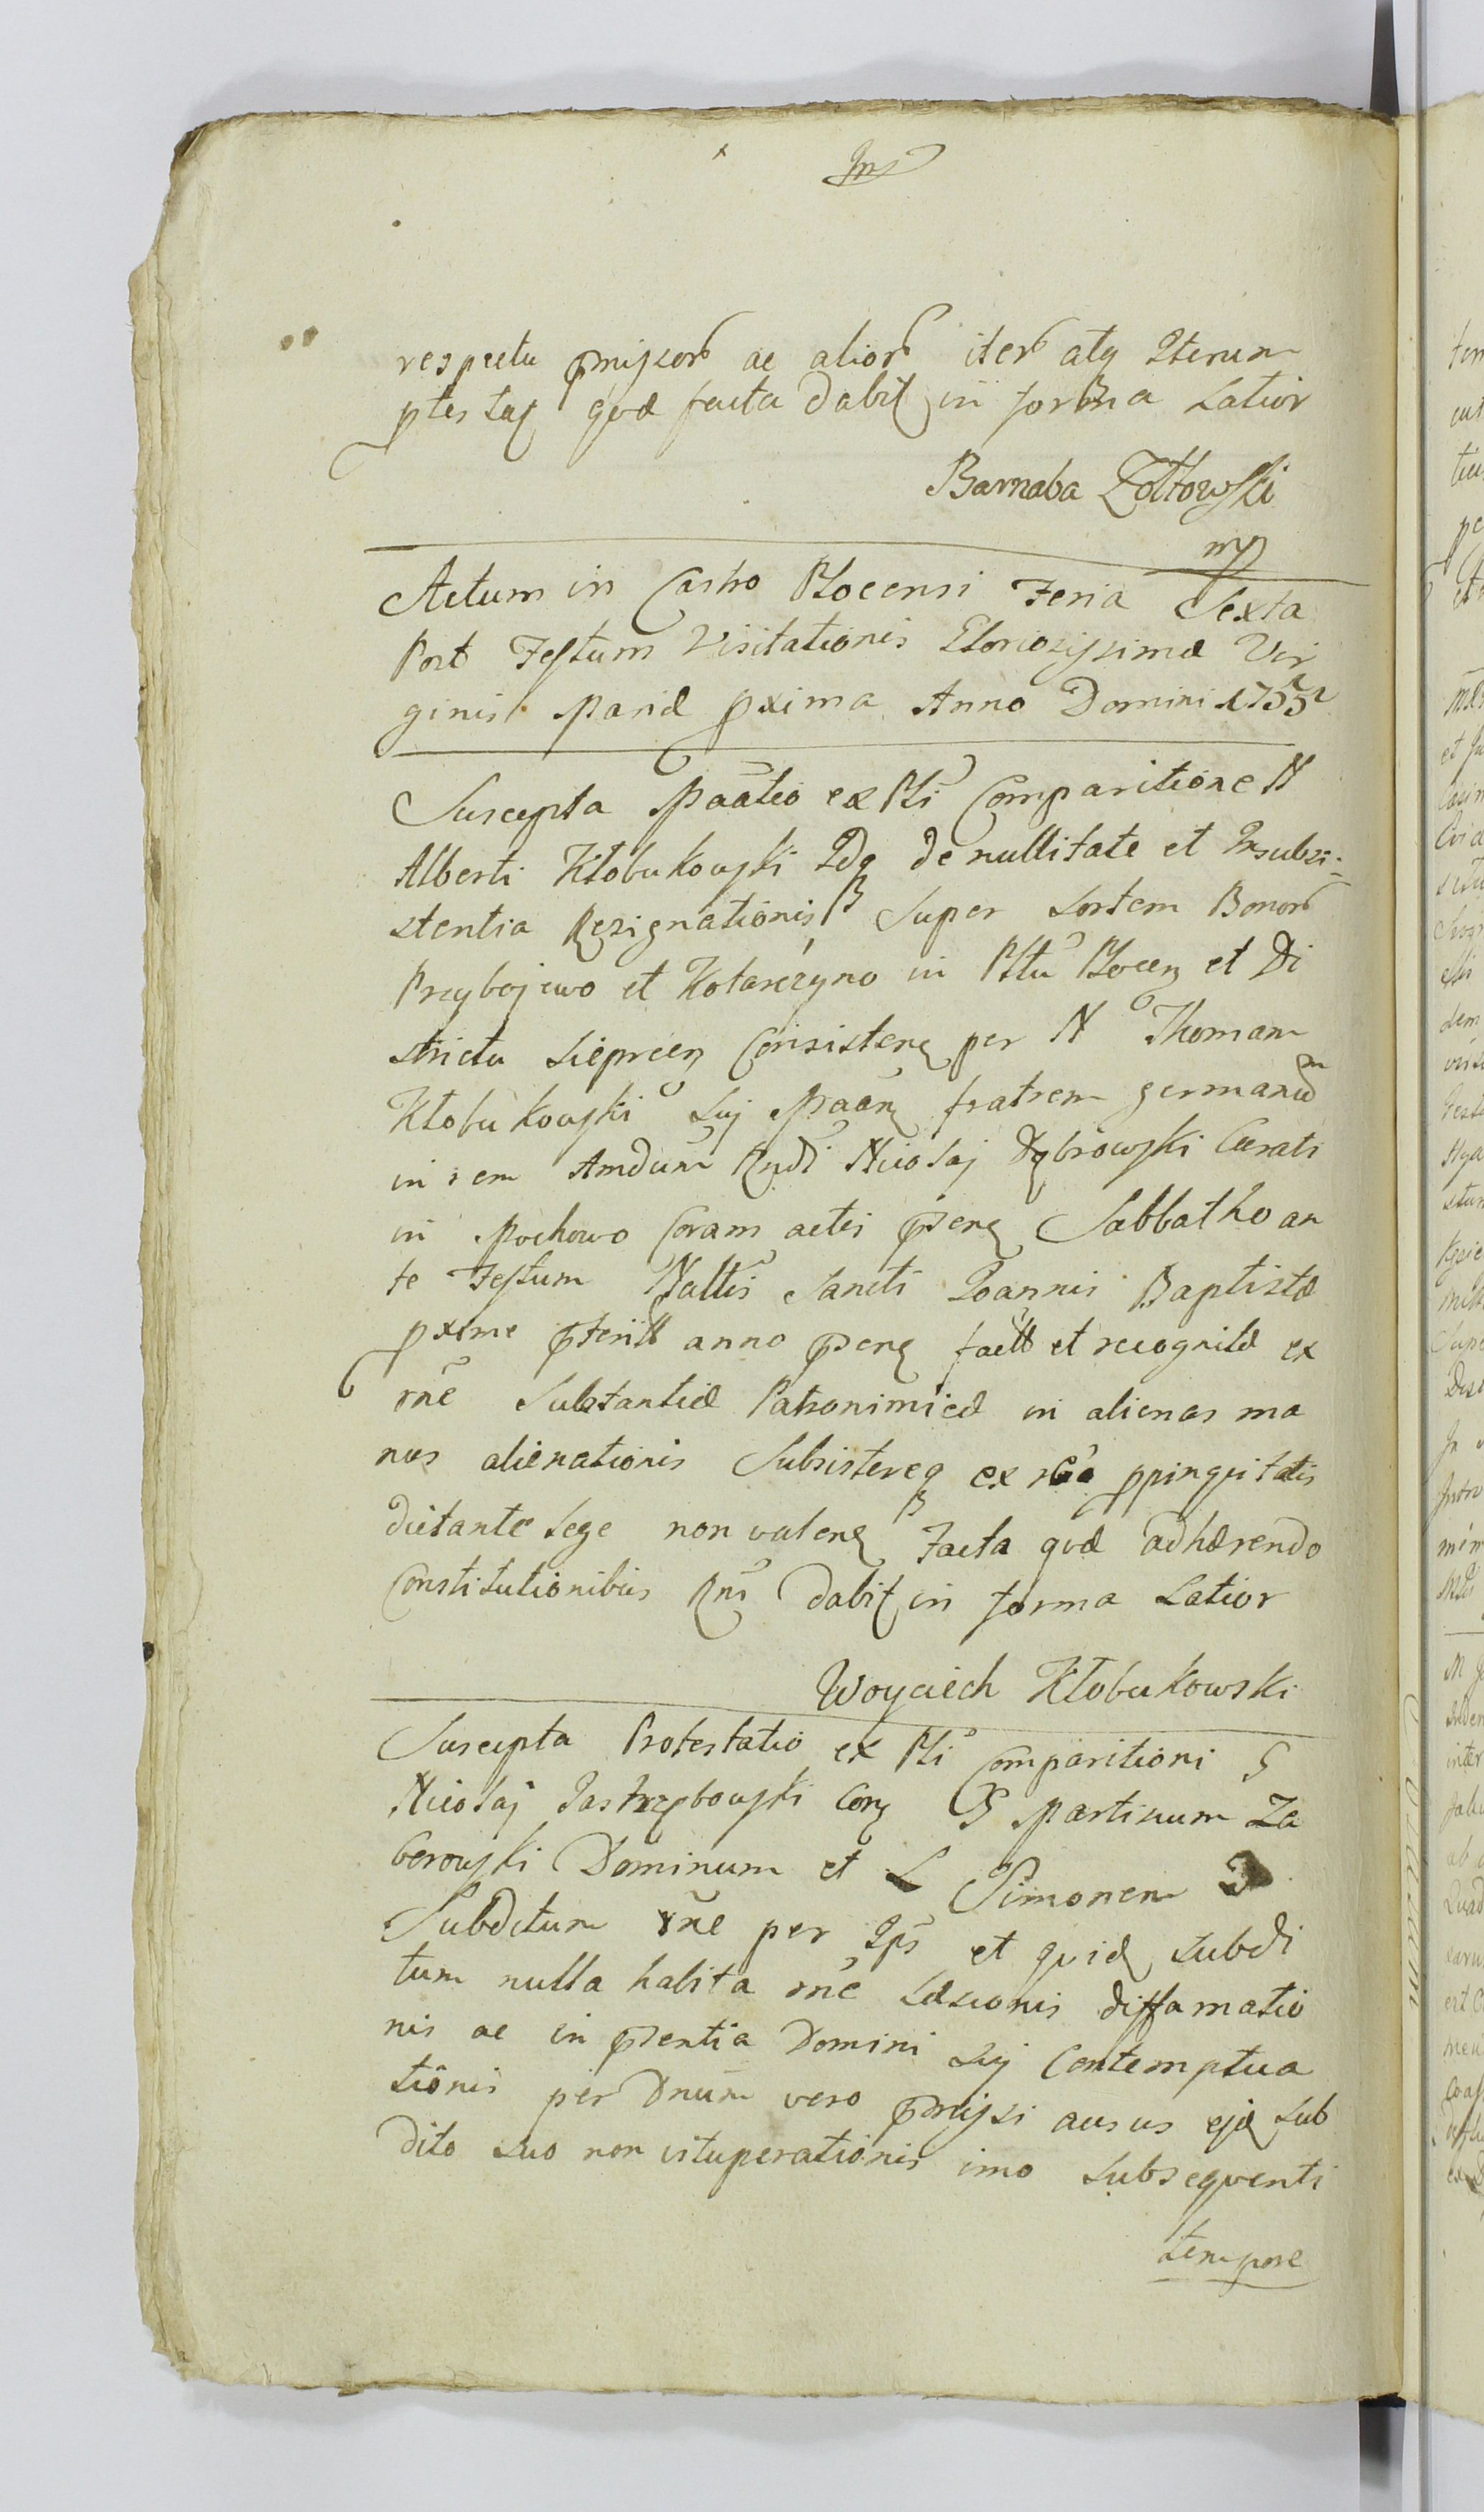 respectu pmissor ac alior iter atq Iterum
ptestatq quæ facta dabit in forma Latior
Barnaba Zołtowski
mp
Actum in Castro Plocensi Feria Sexta
Post Festum Visitationis Gloriosissimæ Vir
ginis Mariæ pxima Anno Domini
Suscepta Maãtio ex Pli Comparitione N
Alberti Kłobukowski Idq de nullitate et Insubsi:
stentia Resignationis Super Sortem Bonor
Przybojewo et Kotarczyno in Pltu Plocen et Di
strictu Sieprcen Consisten per N Thomam
Kłobukowski Sui Maãn fratrem germanum
in rem Amdum Rndi Nicolaj Dąbrowski Curati
in Mochowo Coram actis psen Sabbatho an
te Festum Naltis Sancti Joannis Baptistæ
pxime pterit anno psen fact et recognitæ ex
rñe Substantiæ Patronimicæ in alienas ma
nus alienationis Subsistereq ex rñe ppinquitatis
dictante Lege non valen Facta quæ adhærendo
Constitutionibus Rni dabit in forma Latior
Woyciech Kłobukowski
Suscepta Protestatio ex Pli Comparitioni G
Nicolaj Jastrzębowski Con G Martinum Za
borowski Dominum et L Simonem
Subditum rñe per Ips et quid Subdi
tum nulla habita rñe Læsionis diffamatio
nis ac in psentia Domini Sui Contemptua
tionis per Dnum vero pmissi ausus ejq Sub
dito Suo non vituperationis imo Subsequenti
tempore